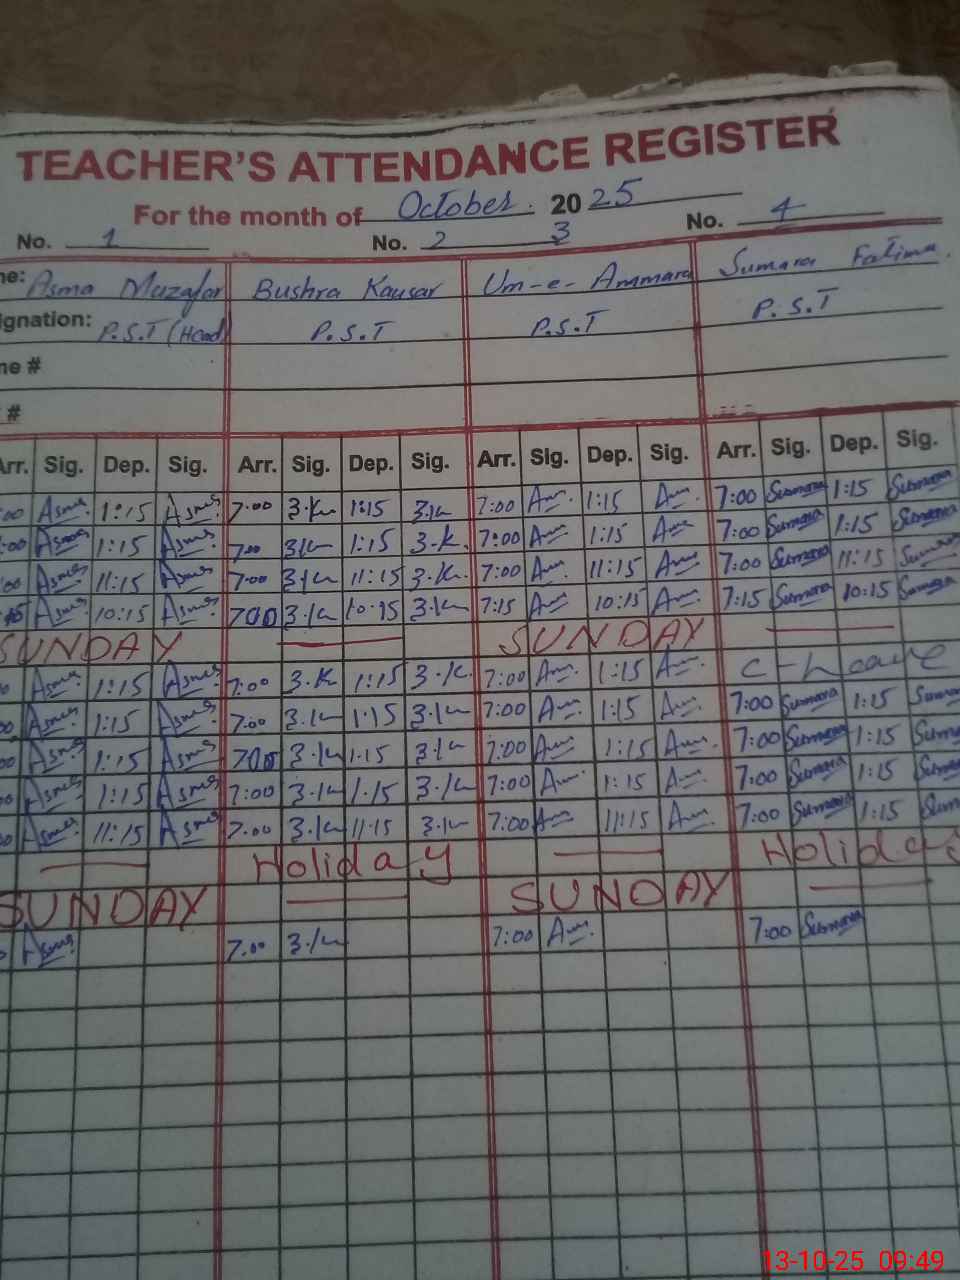 TEACHER'S ATTENDANCE REGISTER
For the month of October. 2025
No. 1 No. 2 3 No. 4
ne: Asma Muzafar Bushra Kausar Um-e-Ammara Sumara Fatima.
ignation: P.S.T (Head) P.S.T P.S.T P.S.T
ne #
#
Arr. Sig. Dep. Sig. Arr. Sig. Dep. Sig. Arr. Sig. Dep. Sig. Arr. Sig. Dep. Sig.
:00 Asma 1:15 Asma 7:00 B.K 1:15 B.K 7:00 Am. 1:15 Am. 7:00 Sumara 1:15 Sumara
:00 Asma 1:15 Asma 7:00 B.K 1:15 B.K. 7:00 Am 1:15 Am 7:00 Sumara 1:15 Sumara
:00 Asma 11:15 Asma 7:00 B.K 11:15 B.K. 7:00 Am. 11:15 Am 7:00 Sumara 11:15 Sumara
Asma 10:15 Asma 700 B.K 10:15 B.K 7:15 Am 10:15 Am. 7:15 Sumara 10:15 Sumara
SUNDAY SUNDAY
Asma 1:15 Asma 7:00 B.K 1:15 B.K 7:00 Am. 1:15 Am. C-Leave
Asma 1:15 Asma 7:00 B.K 1:15 B.K 7:00 Am. 1:15 Am. 7:00 Sumara 1:15 Suma
Asma 1:15 Asma 700 B.K 1:15 B.K 7:00 Am 1:15 Am. 7:00 Sumara 1:15 Sum
Asma 1:15 Asma 7:00 B.K 1:15 B.K 7:00 Am 1:15 Am. 7:00 Sumara 1:15 Sum
Asma 11:15 Asma 7:00 B.K 11:15 B.K 7:00 Am 11:15 Am. 7:00 Sumara 1:15 Sum
Holiday Holiday
SUNDAY SUNDAY
Asma 7:00 B.K 7:00 Am. 7:00 Sumara
13-10-25 09:49